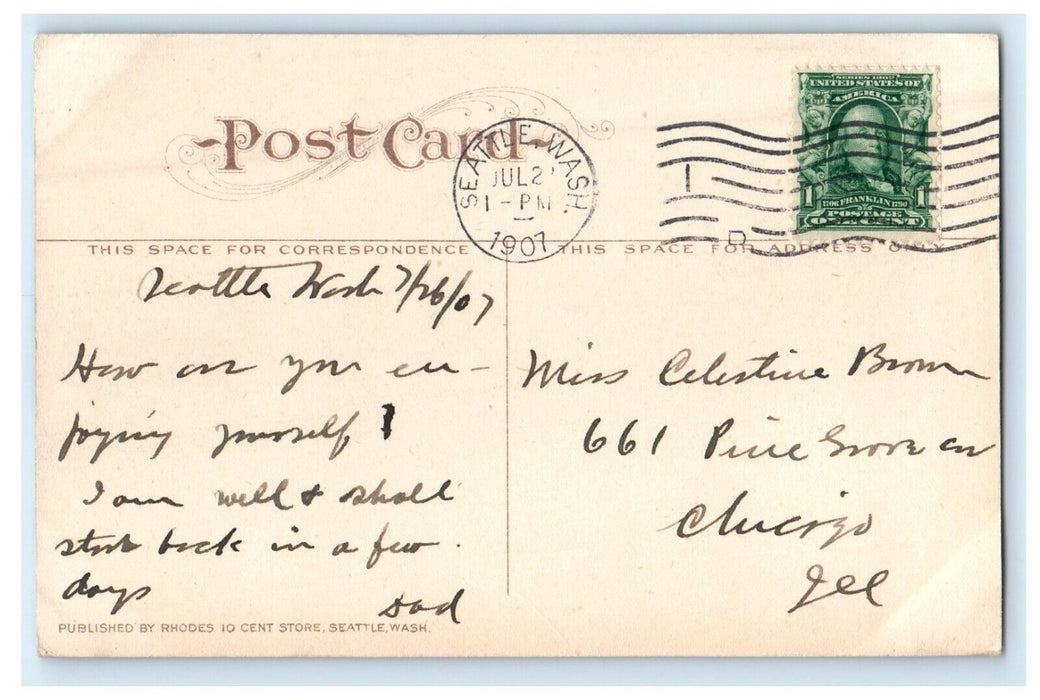 Post Card.
SEATTLE, WASH.
JUL 2
1 - PM
1907
D
SERIES 1902
UNITED STATES OF
AMERICA
1 1706 FRANKLIN 1790 1
POSTAGE
ONE CENT
THIS SPACE FOR CORRESPONDENCE
THIS SPACE FOR ADDRESS ONLY
Seattle Wash 7/26/07
How are you en-
joying yourself?
I am well & shall
start back in a few
days
Dad
Miss Celestine Brown
661 Pine Grove av
Chicago
Ill
PUBLISHED BY RHODES 10 CENT STORE, SEATTLE, WASH.